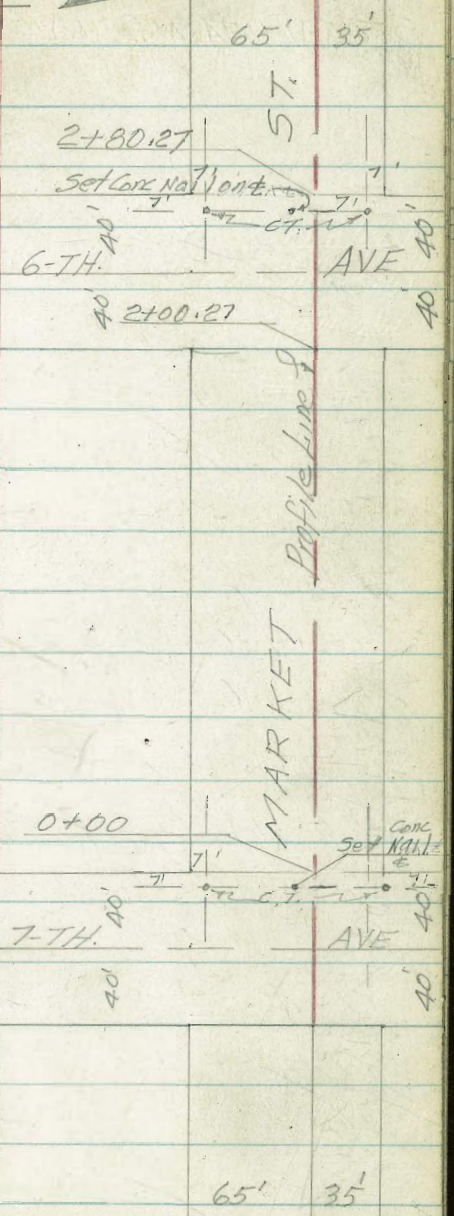 65' 35'
ST.
2+80.27
Set Conc Nail on ℄
7' 7'
7' 7'
C.T.
40' 40'
6-TH. AVE
40' 40'
2+00.27
Profile Line
MARKET
0+00
Set Conc Nail ℄
7'
7' 7'
C.T.
40' 40'
7-TH. AVE
40' 40'
65' 35'